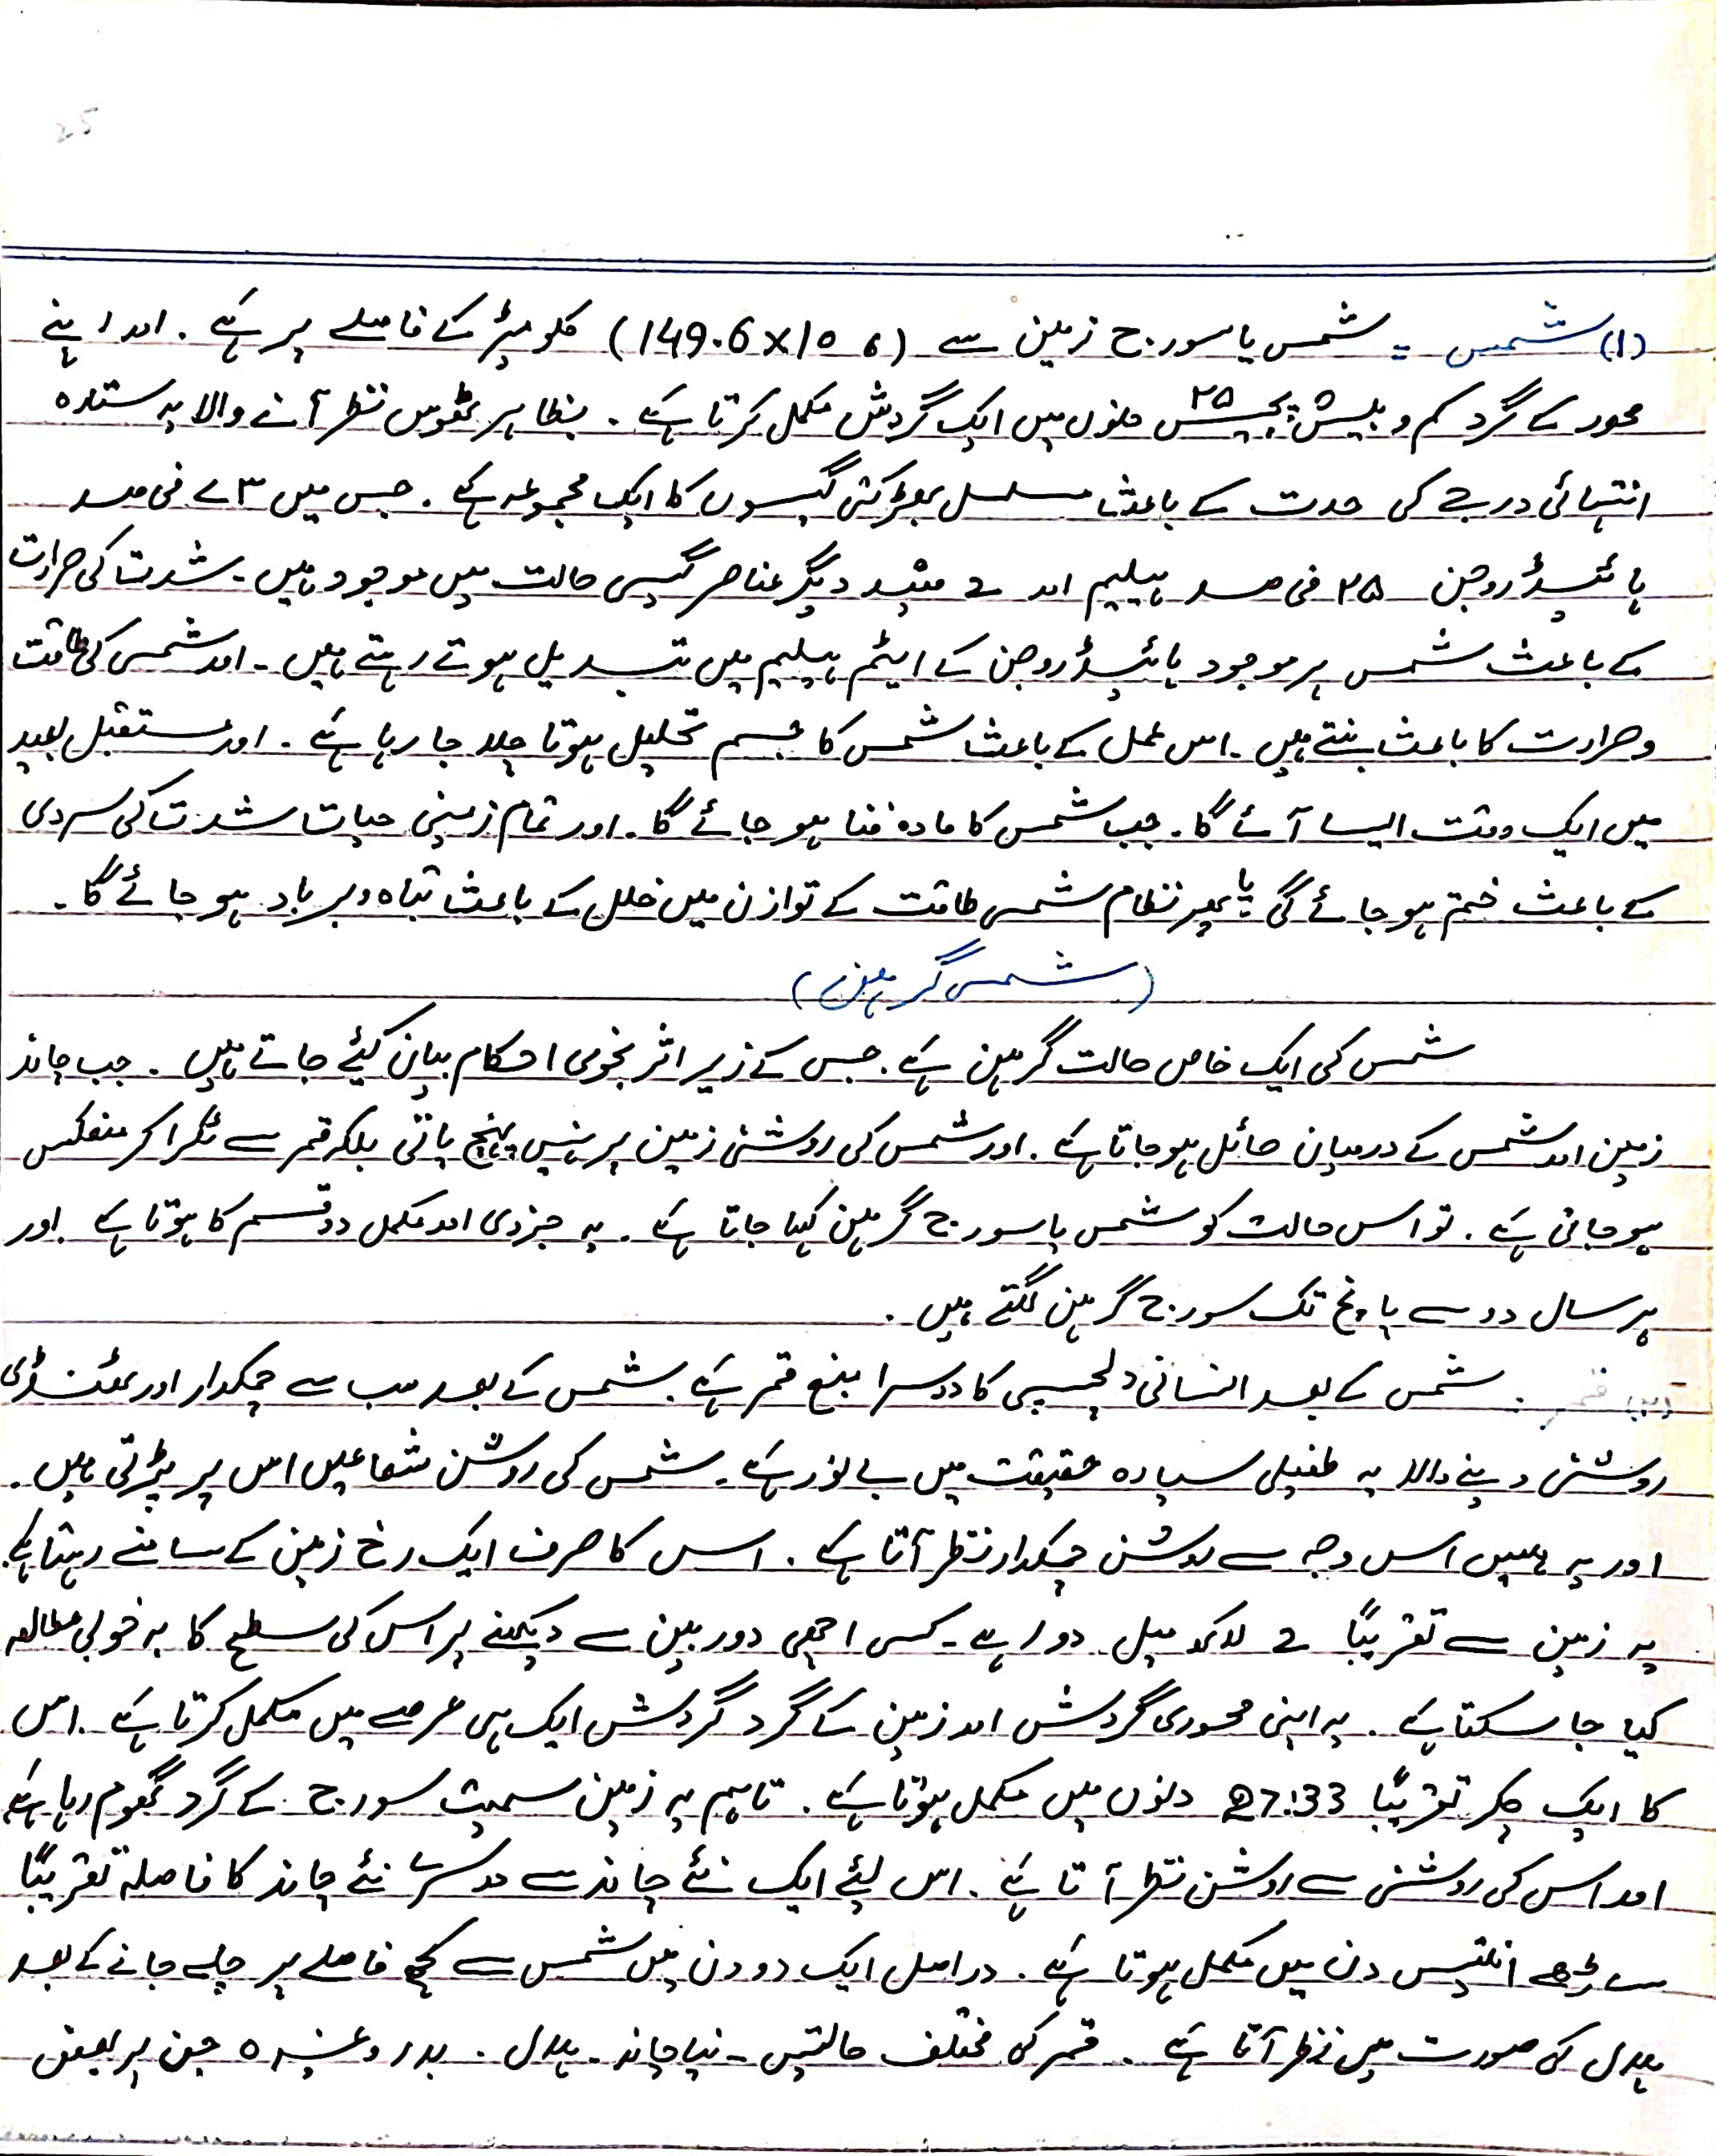 25
(۱) شمس = شمس یا سورج زمین سے (149.6x10 6) کلو میٹر کے فاصلے پر ہے. اور اپنے
محور کے گرد کم و بیش پچیس ۲۵ دنوں میں ایک گردش مکمل کرتا ہے. بظاہر ٹھوس نظر آنے والا یہ ستارہ
انتہائی درجے کی حدت کے باعث مسلسل بھڑکتی گیسوں کا ایک مجموعہ ہے. جس میں ۷۳ فی صد
ہائیڈروجن ۲۵ فی صد ہیلیم اور 2 فیصد دیگر عناصر گیسی حالت میں موجود ہیں۔ شدت کی حرارت
کے باعث شمس پر موجود ہائیڈروجن کے ایٹم ہیلیم میں تبدیل ہوتے رہتے ہیں۔ اور شمس کی طاقت
و حرارت کا باعث بنتے ہیں۔ اس عمل کے باعث شمس کا جسم تحلیل ہوتا چلا جا رہا ہے. اور مستقبل بعید
میں ایک وقت ایسا آئے گا۔ جب شمس کا مادہ فنا ہو جائے گا. اور تمام زمینی حیات شدت کی سردی
کے باعث ختم ہو جائے گی یا پھر نظام شمس طاقت کے توازن میں خلل کے باعث تباہ و برباد ہو جائے گا۔
(شمس گرہن)
شمس کی ایک خاص حالت گرہن ہے. جس کے زیر اثر نجومی احکام بیان کیئے جاتے ہیں. جب چاند
زمین اور شمس کے درمیان حائل ہو جاتا ہے. اور شمس کی روشنی زمین پر نہیں پہنچ پاتی بلکہ قمر سے ٹکرا کر منعکس
ہو جاتی ہے. تو اس حالت کو شمس یا سورج گرہن کہا جاتا ہے. یہ جزوی اور مکمل دو قسم کا ہوتا ہے اور
ہر سال دو سے پانچ تک سورج گرہن لگتے ہیں.
(۲) قمر . شمس کے بعد انسانی دلچسپی کا دوسرا منبع قمر ہے. شمس کے بعد سب سے چمکدار اور ٹھنڈی
روشنی دینے والا یہ طفیلی سیارہ حقیقت میں بے نور ہے۔ شمس کی روشن شعاعیں اس پر پڑتی ہیں.
اور یہ ہمیں اس وجہ سے روشن چمکدار نظر آتا ہے. اس کا صرف ایک رخ زمین کے سامنے رہتا ہے.
یہ زمین سے تقریباً 2 لاکھ میل دور ہے۔ کسی اچھی دوربین سے دیکھنے پر اس کی سطح کا بہ خوبی مطالعہ
کیا جا سکتا ہے. یہ اپنی محوری گردش اور زمین کے گرد گردش ایک ہی عرصے میں مکمل کرتا ہے. اس
کا ایک چکر تقریباً 27:33 دنوں میں مکمل ہوتا ہے. تاہم یہ زمین سمیت سورج کے گرد گھوم رہا ہے
اور اس کی روشنی سے روشن نظر آتا ہے. اس لیئے ایک نئے چاند سے دوسرے نئے چاند کا فاصلہ تقریباً
ساڑھے انتیس دن میں مکمل ہوتا ہے. دراصل ایک دو دن میں شمس سے کچھ فاصلے پر چلے جانے کے بعد
ہلال کی صورت میں نظر آتا ہے. قمر کی مختلف حالتیں۔ نیا چاند۔ ہلال. بدر وغیرہ جن پر بعض